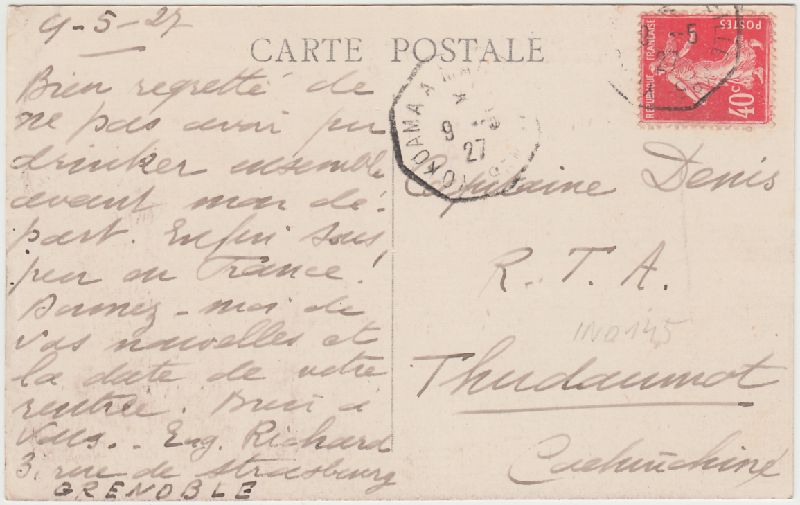 9-5-27
CARTE POSTALE
Bien regretté de
ne pas avoir pu
drinker ensemble
avant mon dé-
part. Enfin sous
peu en France!
Donnez-moi de
vos nouvelles et
la date de votre
rentrée. Bien à
vous.. Eug. Richard
3, rue de Strasbourg
GRENOBLE
YOKOHAMA A MAR
A
9 -5
27
REPUBLIQUE FRANCAISE
POSTES
40c
-5
27
Capitaine Denis
R. T. A.
IND145
Thudaumot
Cochinchine